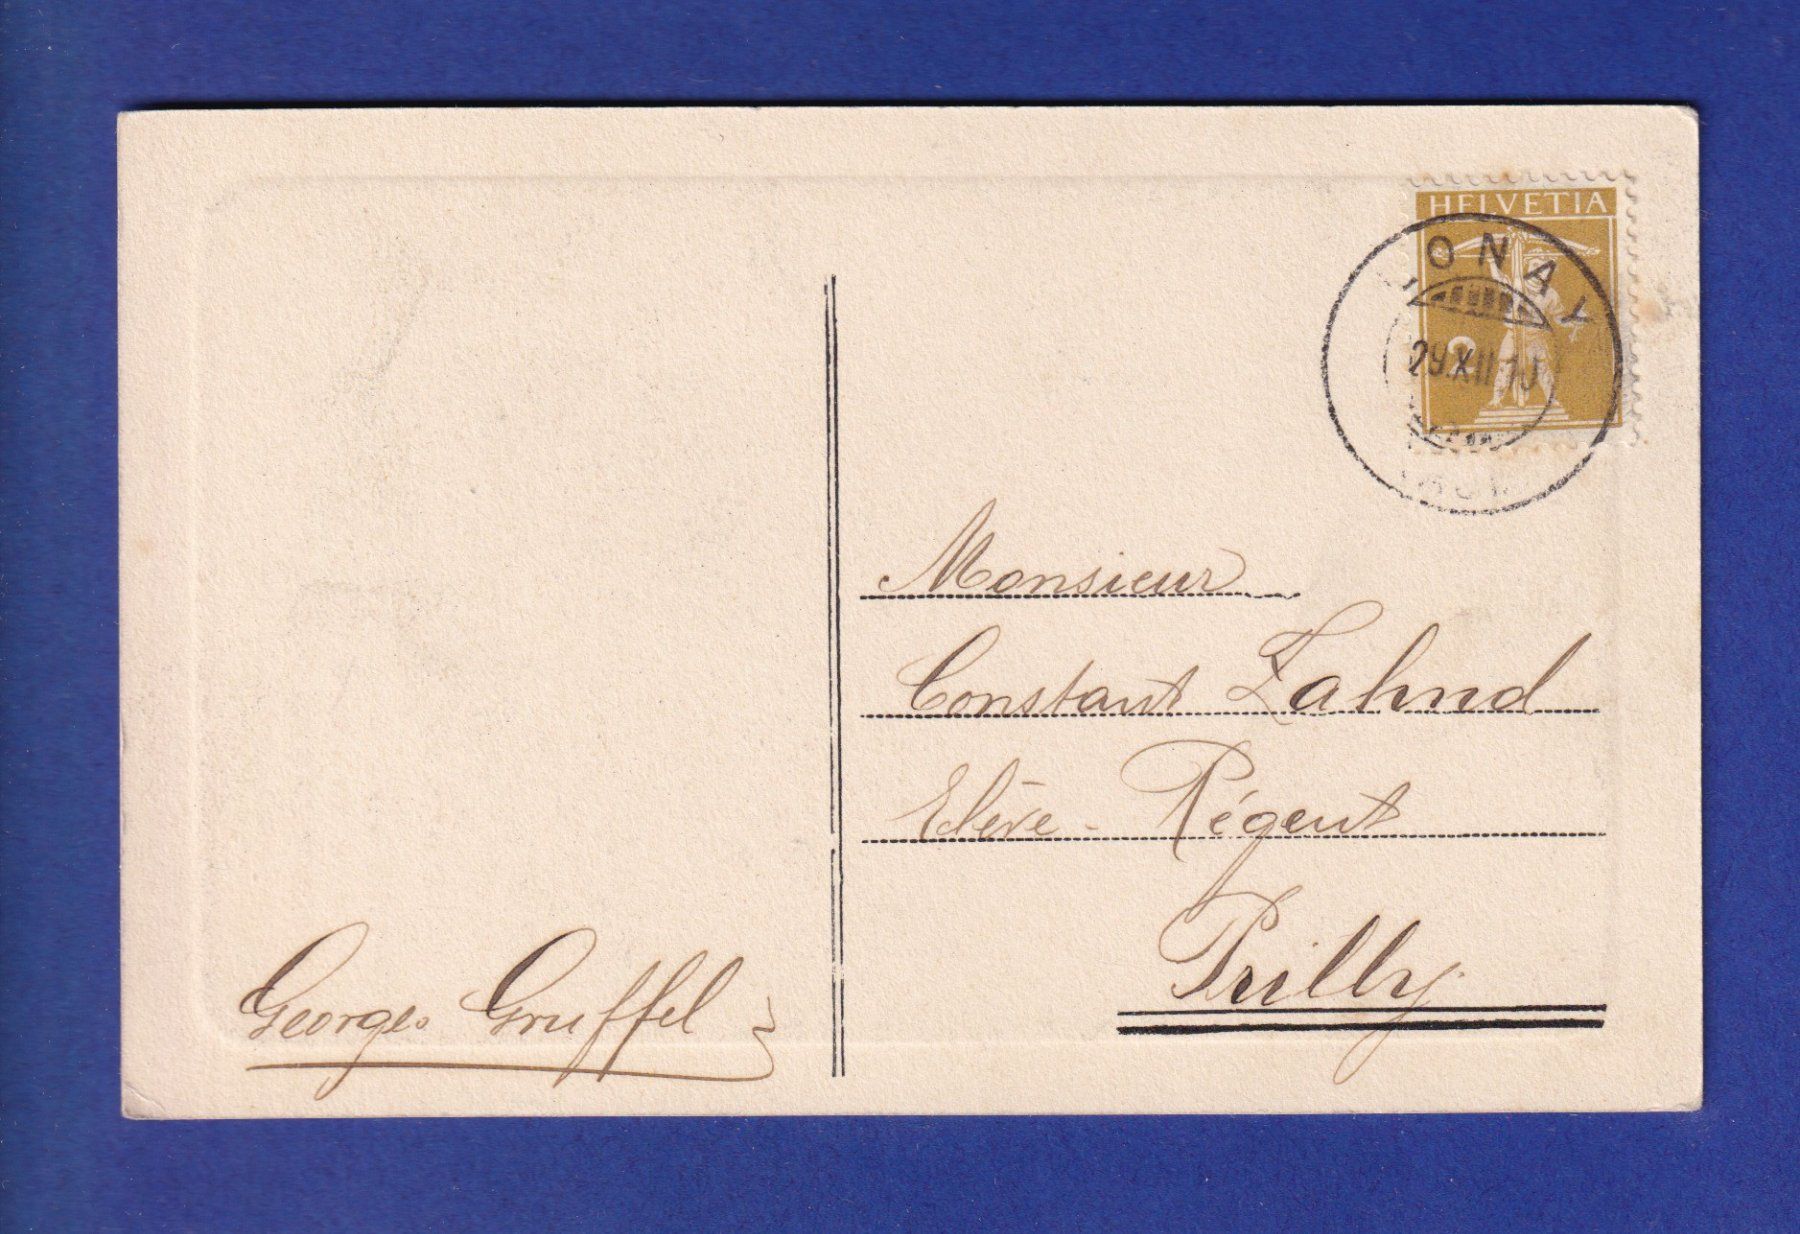 HELVETIA
2
29.XII.10
Monsieur
Constant Zahnd
Elève-Régent
Prilly
Georges Gruffel